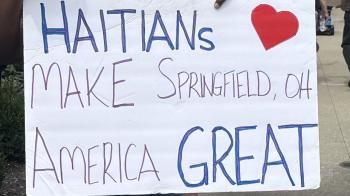 HAITIANs
MAKE SPRINGFIELD, OH
AMERICA GREAT